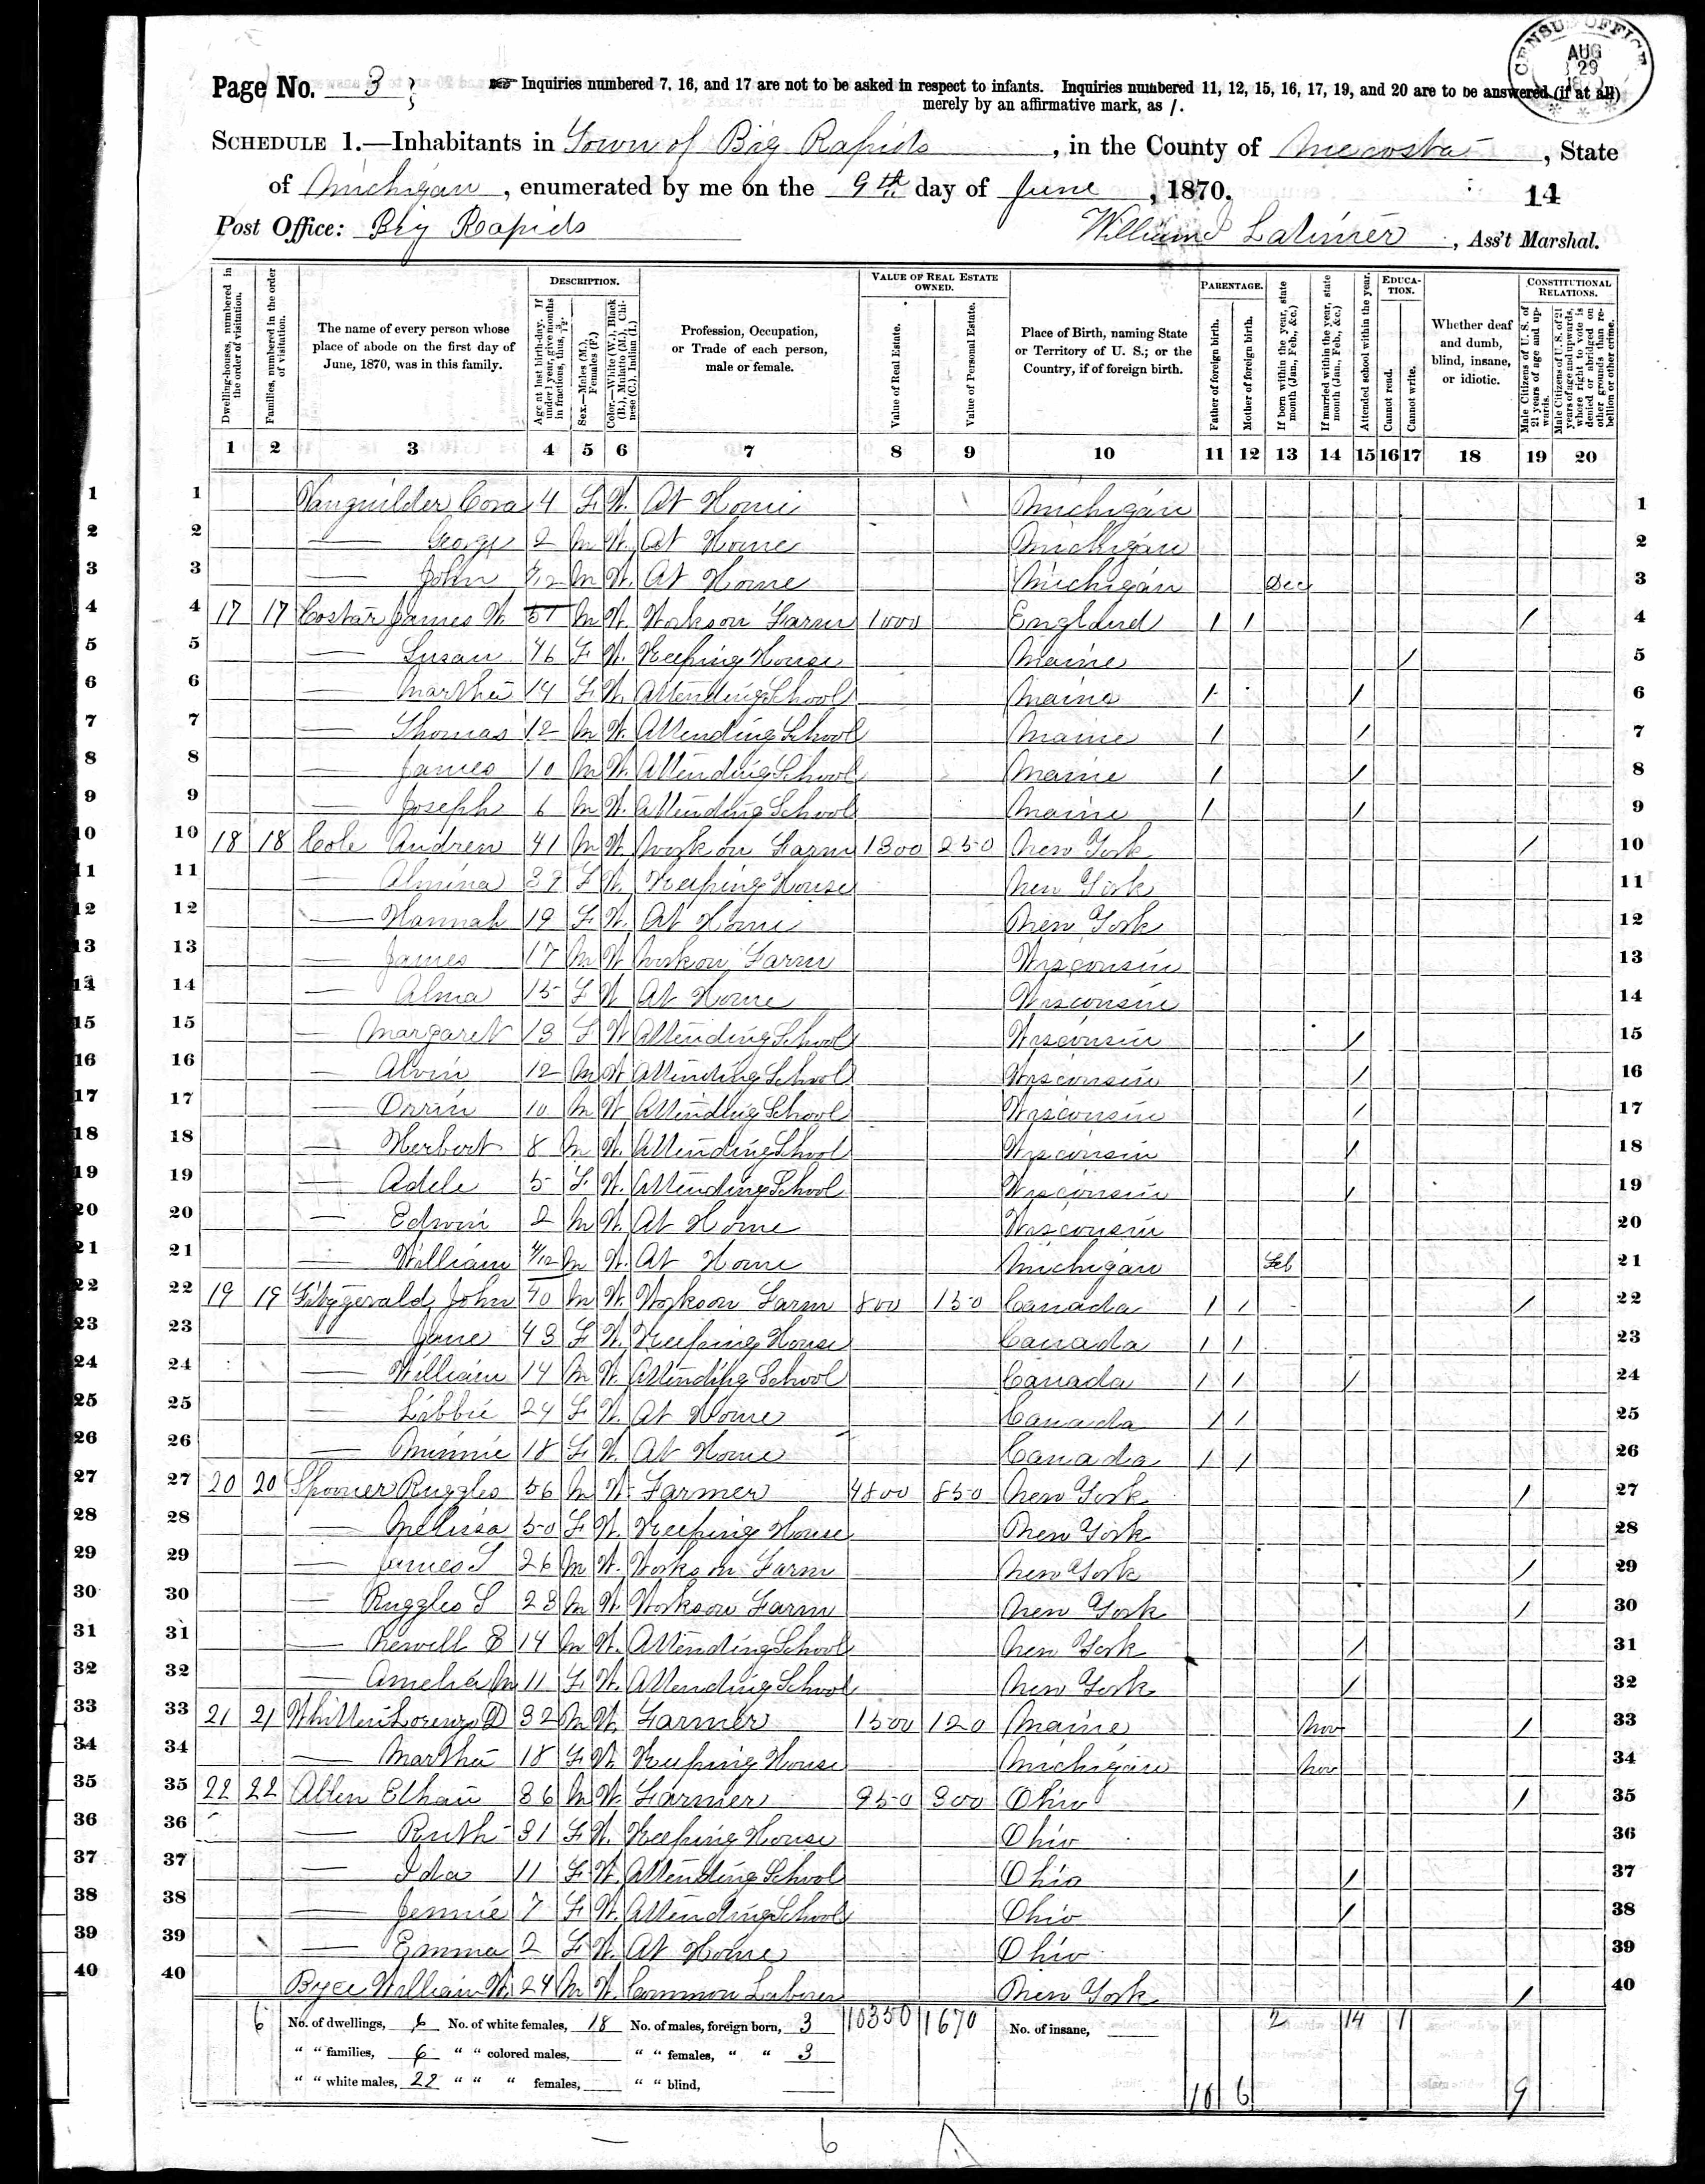 CENSUS OFFICE AUG 29 1870
Page No. 3 Inquiries numbered 7, 16, and 17 are not to be asked in respect to infants. Inquiries numbered 11, 12, 15, 16, 17, 19, and 20 are to be answered (if at all)
merely by an affirmative mark, as /.
SCHEDULE 1.—Inhabitants in Town of Big Rapids, in the County of Mecosta, State
of Michigan, enumerated by me on the 9th day of June, 1870. 14
Post Office: Big Rapids William Latimer, Ass't Marshal.
Dwelling-houses, numbered in the order of visitation.
Families, numbered in the order of visitation.
The name of every person whose place of abode on the first day of June, 1870, was in this family.
DESCRIPTION.
Age at last birth-day. If under 1 year, give months in fractions, thus, 3/12.
Sex.—Males (M.), Females (F.)
Color.—White (W.), Black (B.), Mulatto (M.), Chinese (C.), Indian (I.)
Profession, Occupation, or Trade of each person, male or female.
VALUE OF REAL ESTATE OWNED.
Value of Real Estate.
Value of Personal Estate.
Place of Birth, naming State or Territory of U. S.; or the Country, if of foreign birth.
PARENTAGE.
Father of foreign birth.
Mother of foreign birth.
If born within the year, state month (Jan., Feb., &c.)
If married within the year, state month (Jan., Feb., &c.)
Attended school within the year.
EDUCATION.
Cannot read.
Cannot write.
Whether deaf and dumb, blind, insane, or idiotic.
CONSTITUTIONAL RELATIONS.
Male Citizens of U. S. of 21 years of age and upwards.
Male Citizens of U. S. of 21 years of age and upwards, whose right to vote is denied or abridged on other grounds than rebellion or other crime.
1 2 3 4 5 6 7 8 9 10 11 12 13 14 15 16 17 18 19 20
1 1 Vanguilder Cora 4 F W. At Home Michigan 1
2 2 — George 2 M W. At Home Michigan 2
3 3 — John /12 M W. At Home Michigan Dec 3
4 4 17 17 Costar James W 51 M W. Works on Farm 1000 England / / / 4
5 5 — Susan 46 F W. Keeping House Maine / 5
6 6 — Martha 14 F W. Attending School Maine / / 6
7 7 — Thomas 12 M W. Attending School Maine / / 7
8 8 — James 10 M W. Attending School Maine / / 8
9 9 — Joseph 6 M W. Attending School Maine / / 9
10 10 18 18 Cole Andrew 41 M W Work on Farm 1300 250 New York / 10
11 11 — Almina 39 F W. Keeping House New York 11
12 12 — Hannah 19 F W. At Home New York 12
13 13 — James 17 M W Work on Farm Wisconsin 13
14 14 — Alma 15 F W At Home Wisconsin 14
15 15 — Margaret 13 F W Attending School Wisconsin / 15
16 16 — Alvin 12 M W Attending School Wisconsin / 16
17 17 — Orrin 10 M W Attending School Wisconsin / 17
18 18 — Herbert 8 M W. Attending School Wisconsin / 18
19 19 — Adele 5 F W. Attending School Wisconsin / 19
20 20 — Edwin 2 M W. At Home Wisconsin 20
21 21 — William 4/12 M W. At Home Michigan Feb 21
22 22 19 19 Fitzgerald John 40 M W. Works on Farm 800 150 Canada / / / 22
23 23 — Jane 43 F W. Keeping House Canada / / 23
24 24 — William 14 M W. Attending School Canada / / / 24
25 25 — Libbie 24 F W. At Home Canada / / 25
26 26 — Minnie 18 F W. At Home Canada / / 26
27 27 20 20 Spooner Ruggles 56 M W. Farmer 4800 850 New York / 27
28 28 — Melissa 50 F W. Keeping House New York 28
29 29 — James S 26 M W. Works on Farm New York / 29
30 30 — Ruggles S 23 M W. Works on Farm New York / 30
31 31 — Newell E 14 M W. Attending School New York / 31
32 32 — Amelia M 11 F W. Attending School New York / 32
33 33 21 21 Whitten Lorenzo D 32 M W. Farmer 1500 120 Maine Nov / 33
34 34 — Martha 18 F W. Keeping House Michigan Nov 34
35 35 22 22 Allen Ethan 36 M W. Farmer 950 300 Ohio / 35
36 36 — Ruth 31 F W. Keeping House Ohio 36
37 37 — Ida 11 F W. Attending School Ohio / 37
38 38 — Jennie 7 F W. Attending School Ohio / 38
39 39 — Emma 2 F W. At Home Ohio 39
40 40 Byce William W. 24 M W. Common Laborer New York / 40
6 No. of dwellings, 6 No. of white females, 18 No. of males, foreign born, 3 10350 1670 No. of insane, 2 14 1
" " families, 6 " " colored males, " " females, " " 3
" " white males, 22 " " " females, " " blind, 10 6 9
6